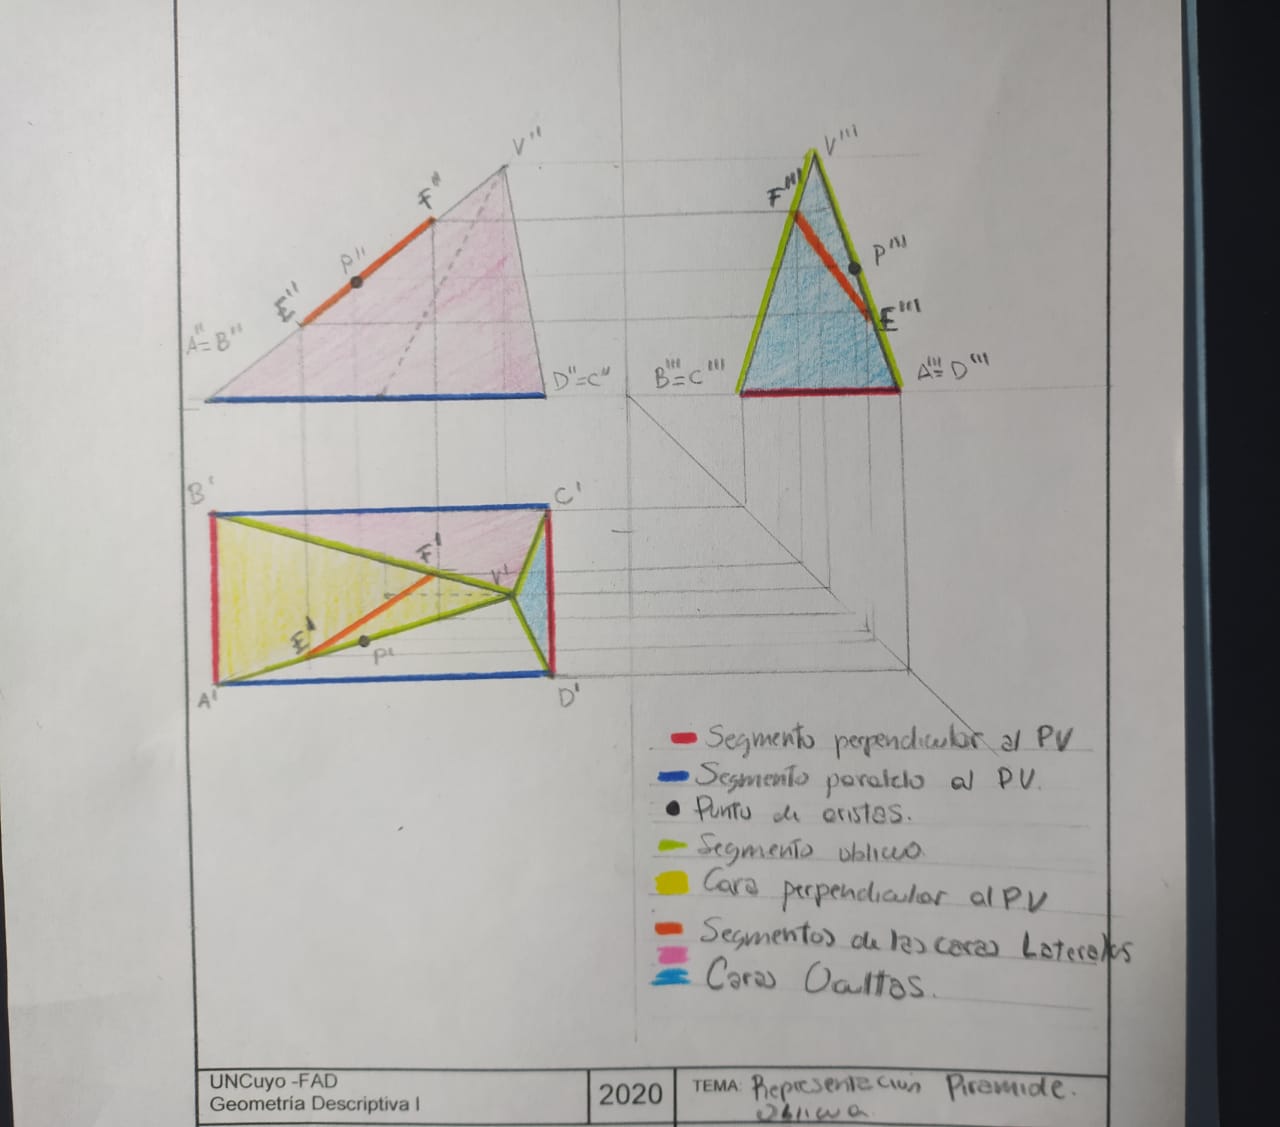 V"
V'''
F"
F'''
P"
P'''
E"
E'''
A"=B"
D"=C"
B'''=C'''
A'''=D'''
B'
C'
F'
V'
E'
P'
A'
D'
Segmento perpendicular al PV
Segmento paralelo al PV.
Punto de aristas.
Segmento oblicuo
Cara perpendicular al PV
Segmentos de las caras Laterales
Caras Ocultas.
UNCuyo -FAD
Geometría Descriptiva I
2020
TEMA: Representacion Piramide.
Oblicua